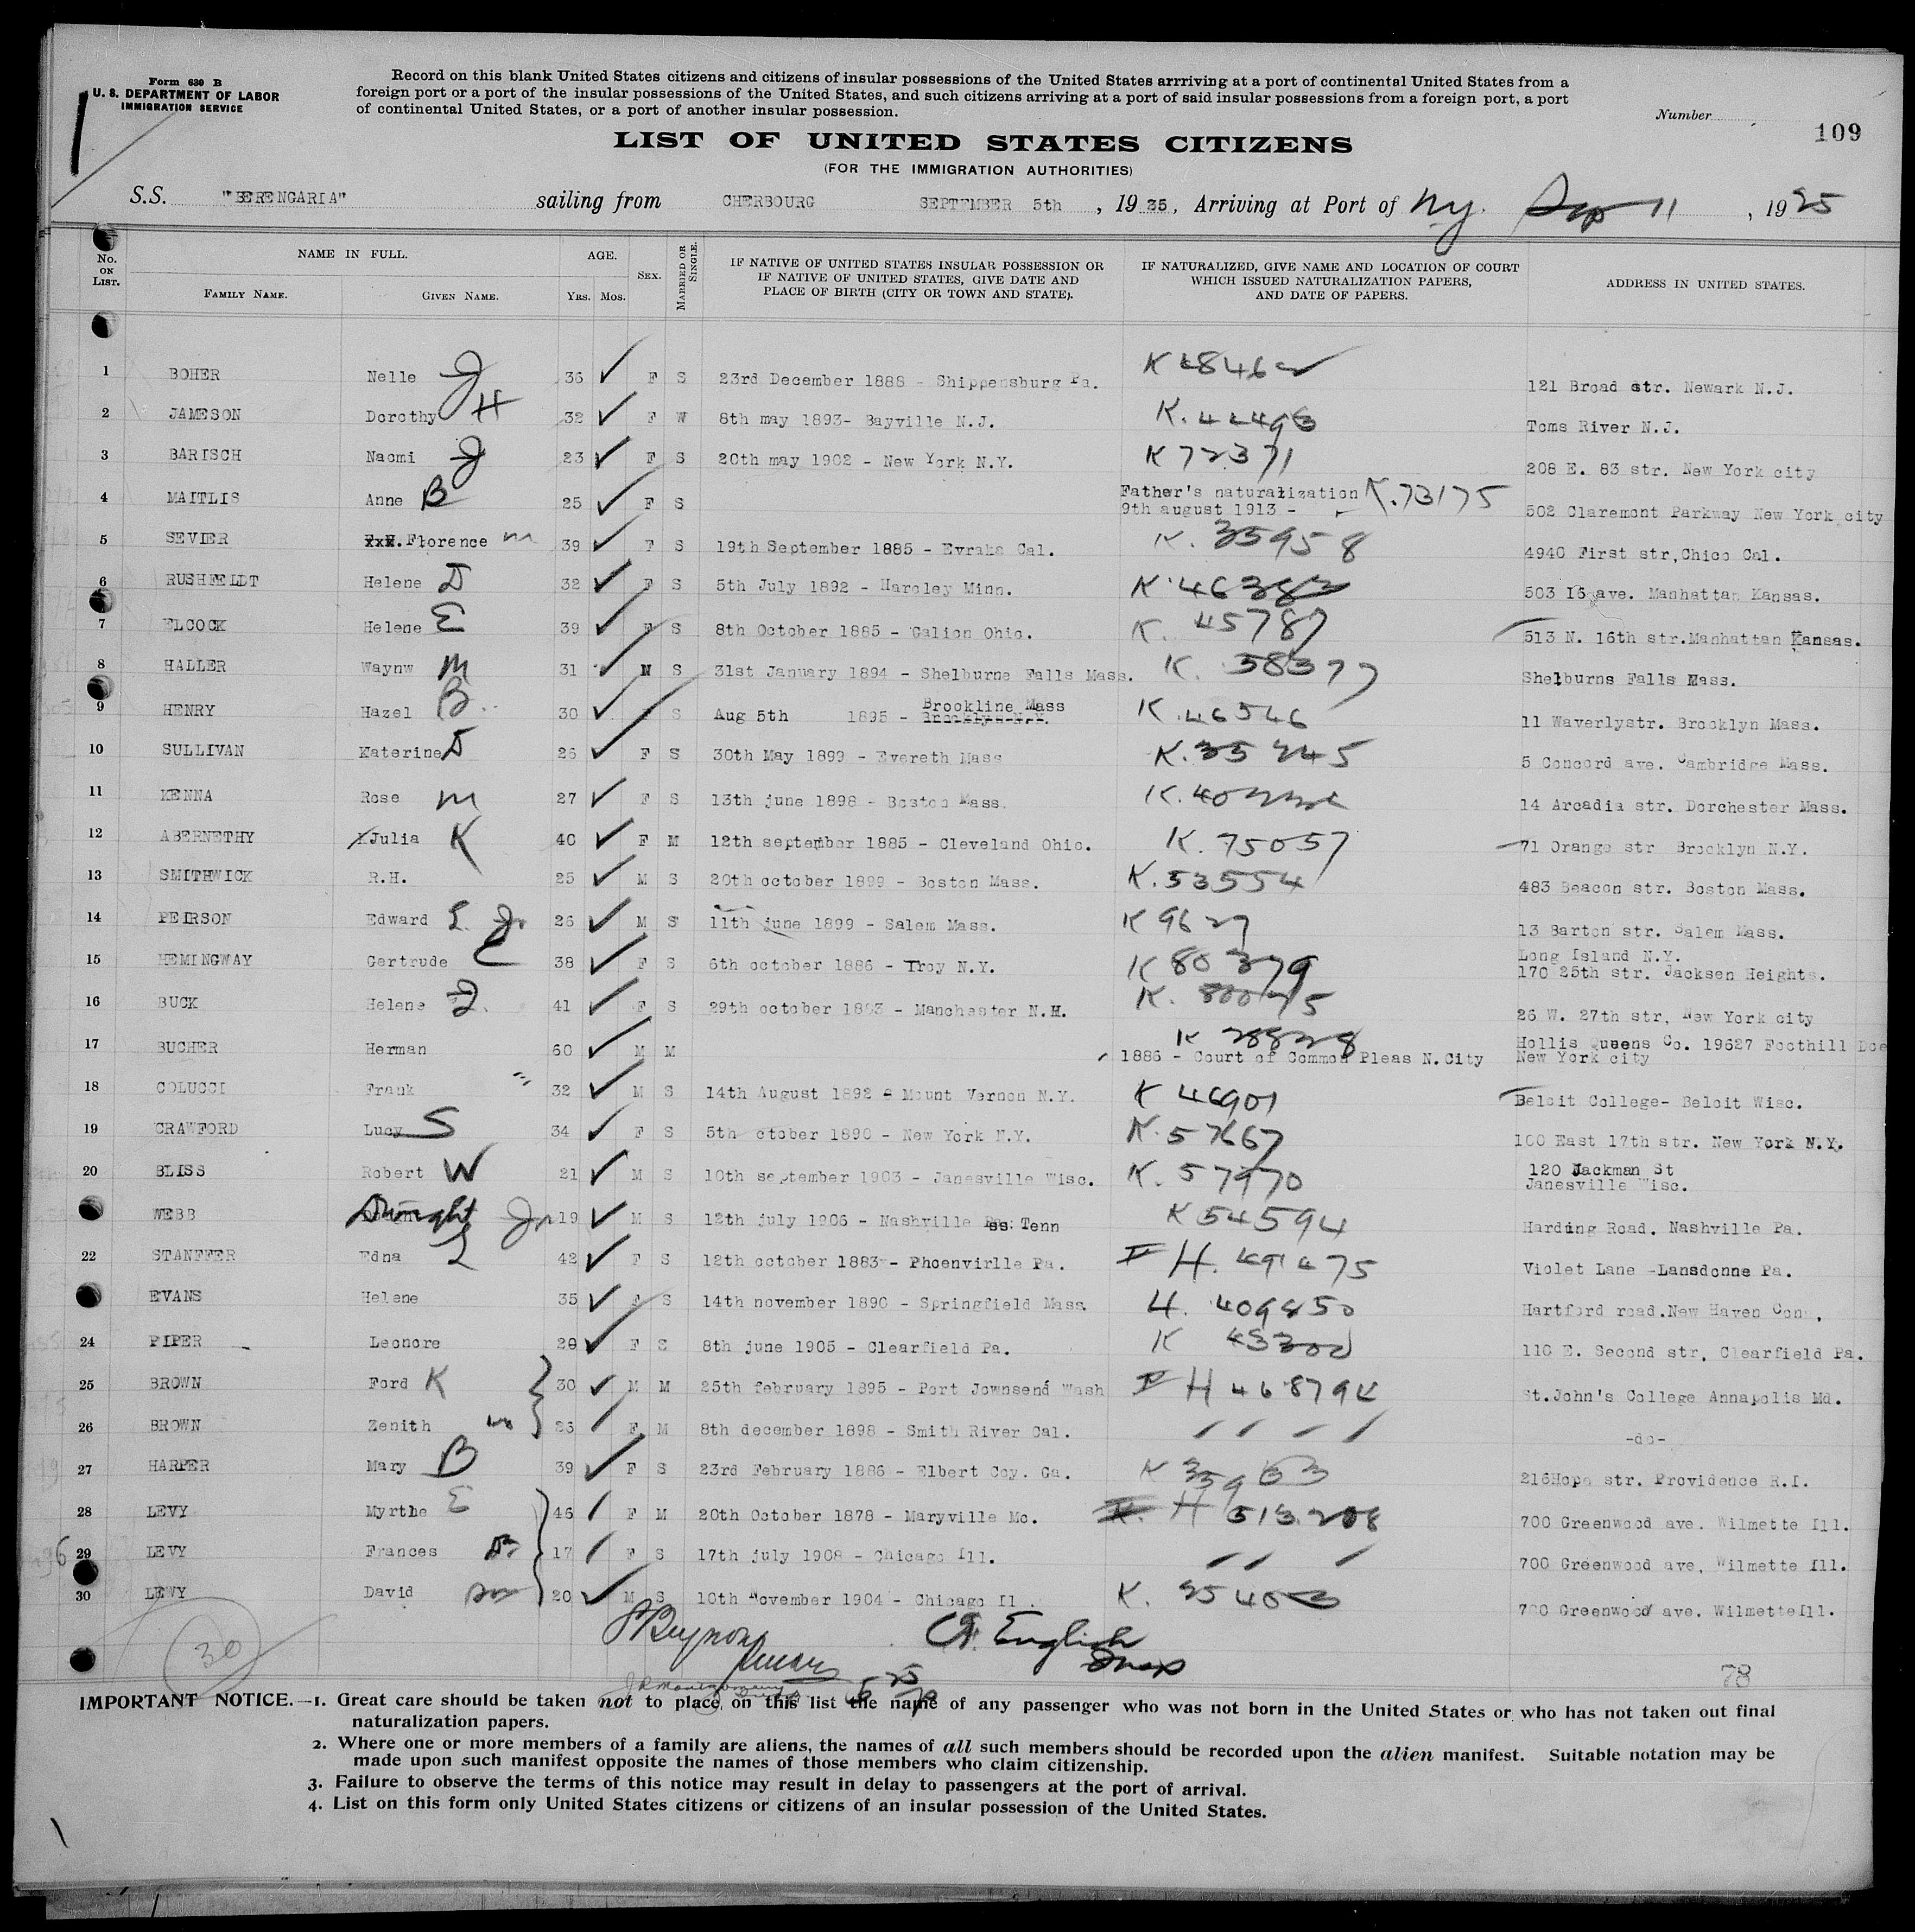 Form 630 B
U. S. DEPARTMENT OF LABOR
IMMIGRATION SERVICE
Record on this blank United States citizens and citizens of insular possessions of the United States arrriving at a port of continental United States from a
foreign port or a port of the insular possessions of the United States, and such citizens arriving at a port of said insular possessions from a foreign port, a port
of continental United States, or a port of another insular possession.
Number
109
LIST OF UNITED STATES CITIZENS
(FOR THE IMMIGRATION AUTHORITIES)
S.S. "BERENGARIA" sailing from CHERBOURG SEPTEMBER 5th, 1925, Arriving at Port of Ny. Sep 11, 1925
No. ON LIST. NAME IN FULL. FAMILY NAME. GIVEN NAME. AGE. YRS. MOS. SEX. MARRIED OR SINGLE. IF NATIVE OF UNITED STATES INSULAR POSSESSION OR IF NATIVE OF UNITED STATES, GIVE DATE AND PLACE OF BIRTH (CITY OR TOWN AND STATE). IF NATURALIZED, GIVE NAME AND LOCATION OF COURT WHICH ISSUED NATURALIZATION PAPERS, AND DATE OF PAPERS. ADDRESS IN UNITED STATES.
1 BOHER Nelle J 36 F S 23rd December 1888 - Shippensburg Pa. K 48462 121 Broad str. Newark N.J.
2 JAMESON Dorothy H 32 F W 8th may 1893- Bayville N.J. K. 44496 Toms River N.J.
3 BARISCH Naomi J 23 F S 20th may 1902 - New York N.Y. K 72371 208 E. 83 str. New York city
4 MAITLIS Anne B 25 F S Father's naturalization K.73175
9th august 1913 - 502 Claremont Parkway New York city
5 SEVIER Florence m 39 F S 19th September 1885 - Evraka Cal. K. 35958 4940 First str,Chico Cal.
6 RUSHFELDT Helene D 32 F S 5th July 1892 - Harcley Minn. K 46382 503 16 ave. Manhattan Kansas.
7 ELCOCK Helene E 39 F S 8th October 1885 - Galion Ohio. K. 45787 513 N. 16th str.Manhattan Kansas.
8 HALLER Waynw M 31 M S 31st January 1894 - Shelburne Falls Mass. K. 58377 Shelburns Falls Mass.
9 HENRY Hazel B. 30 F S Aug 5th 1895 - Brookline Mass Brooklyn N.Y. K.46546 11 Waverlystr. Brooklyn Mass.
10 SULLIVAN Katerine D 26 F S 30th May 1899 - Evereth Mass K.35245 5 Concord ave. Cambridge Mass.
11 KENNA Rose M 27 F S 13th june 1898 - Boston Mass. 14 Arcadia str. Dorchester Mass.
12 ABERNETHY Julia K 40 F M 12th september 1885 - Cleveland Ohio. K. 75057 71 Orange str Brooklyn N.Y.
13 SMITHWICK R.H. 25 M S 20th october 1899 - Boston Mass. K.53554 483 Beacon str. Boston Mass.
14 PEIRSON Edward L. Jr 26 M S 11th june 1899 - Salem Mass. K 9627 13 Barton str. Salem Mass.
15 HEMINGWAY Gertrude C 38 F S 6th october 1886 - Troy N.Y. K 80379 Long Island N.Y.
170 25th str. Jacksen Heights.
16 BUCK Helene J. 41 F S 29th october 1883 - Manchester N.H. 26 W. 27th str, New York city
17 BUCHER Herman 60 M M K 28828
1886 - Court of Common Pleas N.City Hollis Queens Co. 19627 Foothill Dce
New York city
18 COLUCCI Frank 32 M S 14th August 1892 - Mount Vernon N.Y. K 46901 Beloit College- Beloit Wisc.
19 CRAWFORD Lucy S 34 F S 5th ctober 1890 - New York N.Y. K.57667 100 East 17th str. New York N.Y.
20 BLISS Robert W 21 M S 10th september 1903 - Janesville Wisc. K. 57970 120 Jackman St
Janesville Wisc.
WEBB Dwright Jr 19 M S 12th july 1906 - Nashville Tenn K 54594 Harding Road. Nashville Pa.
22 STANFFER Edna L 42 F S 12th october 1883 - Phoenvirlle Pa. H. 491475 Violet Lane -Lansdonne Pa.
EVANS Helene 35 F S 14th november 1890 - Springfield Mass. H. 409850 Hartford road.New Haven Con.
24 PIPER Leonore 20 F S 8th june 1905 - Clearfield Pa. K 43300 110 E. Second str, Clearfield Pa.
25 BROWN Ford K 30 M M 25th february 1895 - Port Townsend Wash H 468794 St.John's College Annapolis Md.
26 BROWN Zenith 26 F M 8th december 1898 - Smith River Cal. " " " " -do-
27 HARPER Mary B 39 F S 23rd February 1886 - Elbert Coy. Ga. K 35963 216Hope str. Providence R.I.
28 LEVY Myrthe E 46 F M 20th October 1878 - Maryville Mo. H 513208 700 Greenwood ave. Wilmette Ill.
29 LEVY Frances 17 F S 17th july 1908 - Chicago Ill. " " " 700 Greenwood ave, Wilmette Ill.
30 LEWY David 20 M S 10th November 1904 - Chicago Il. K. 25403 700 Greenwood ave. WilmetteIll.
30
English
Insp
78
IMPORTANT NOTICE.—1. Great care should be taken not to place on this list the name of any passenger who was not born in the United States or who has not taken out final
naturalization papers.
2. Where one or more members of a family are aliens, the names of all such members should be recorded upon the alien manifest. Suitable notation may be
made upon such manifest opposite the names of those members who claim citizenship.
3. Failure to observe the terms of this notice may result in delay to passengers at the port of arrival.
4. List on this form only United States citizens or citizens of an insular possession of the United States.